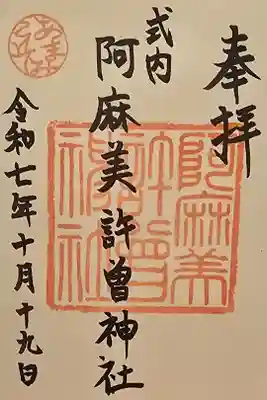 奉拝
式内
阿麻美許曽神社
令和七年十月十九日
阿麻美
許曽
神社